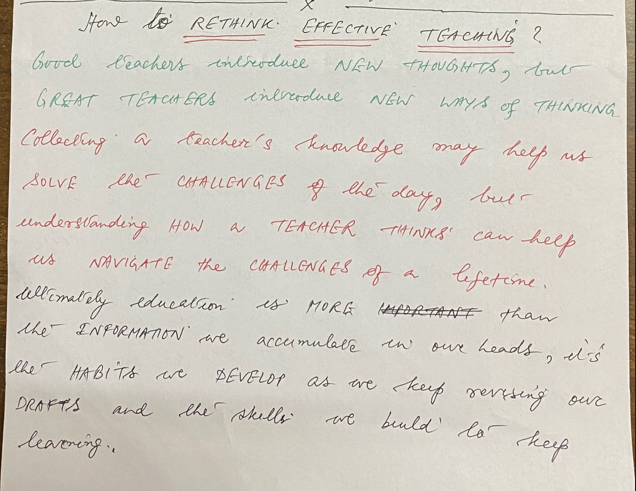 x
How to RETHINK EFFECTIVE TEACHING?
Good teachers introduce NEW THOUGHTS, but
GREAT TEACHERS introduce NEW WAYS of THINKING
Collecting a teacher's knowledge may help us
SOLVE the CHALLENGES of the day, but
understanding HOW a TEACHER THINKS can help
us NAVIGATE the CHALLENGES of a lifetime.
Ultimately education is MORE IMPORTANT than
the INFORMATION we accumulate in our heads, it's
the HABITS we DEVELOP as we keep revising our
DRAFTS and the skills we build to keep
learning..